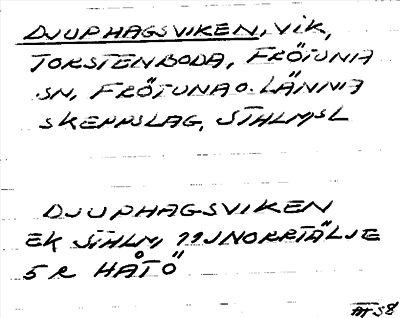 DJUPHAGSVIKEN, VIK,
TORSTENBODA, FRÖTUNA
SN, FRÖTUNA O. LÄNNA
SKEPPSLAG, STHLMSL
DJUPHAGSVIKEN
EK STHLM, 11J NORRTÄLJE
5 R HÅTÖ